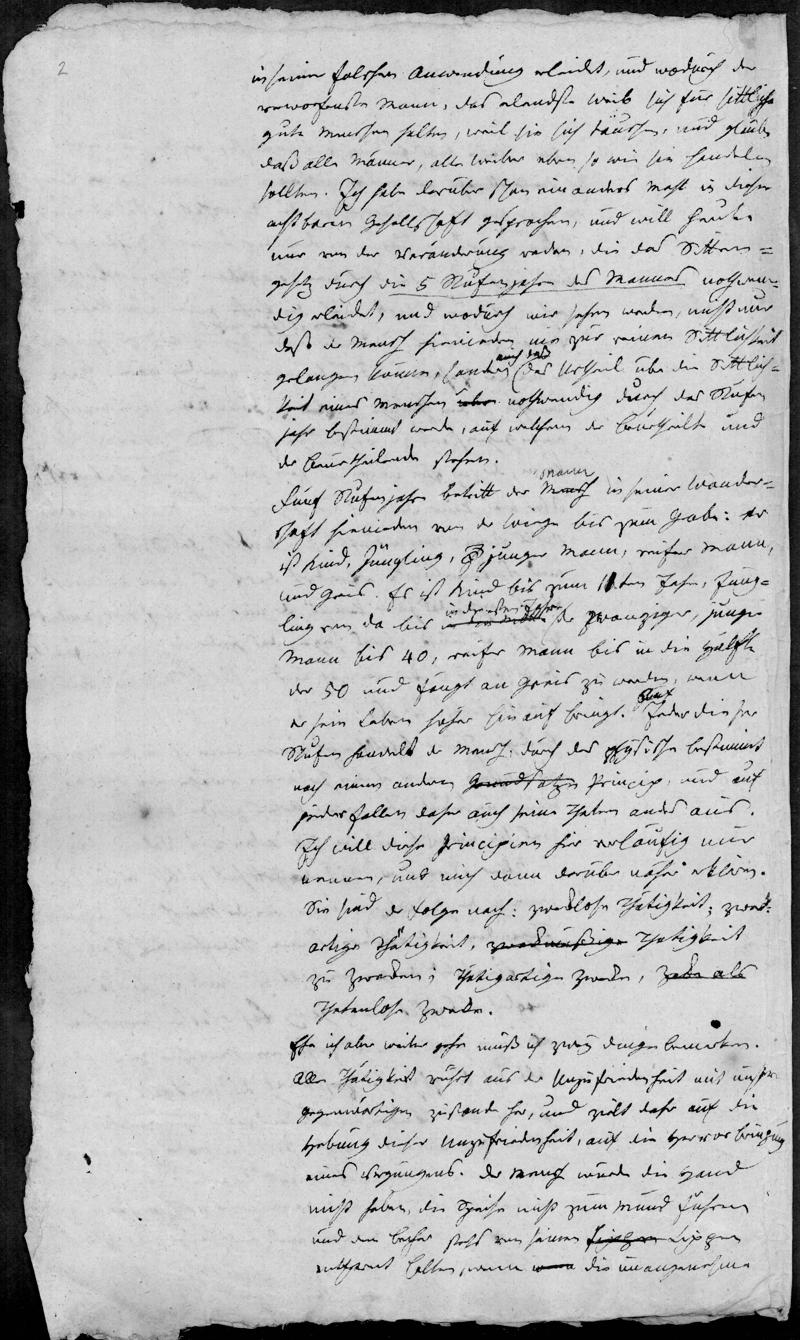 2
in seiner falschen Anwendung erleidet, und wodurch der
verworfenste Mann, das elendste Weib sich für sittliche
gute Menschen halten, weil sie sich täuschen, und glauben
daß alle Männer, alle Weiber eben so wie sie handeln
sollten. Ich habe darüber schon ein anders Mahl in dieser
achtbaren Gesellschaft gesprochen, und will heute
nur von der Veränderung reden, die das Sitten=
gesetz durch die 5 Stufenjahre des Mannes nothwen-
dig erleidet, und wodurch wir sehen werden, nicht nur
daß der Mensch hienieden nie zur reinen Sittlichkeit
gelangen kann, sondern auch daß das Urtheil über die Sittlich=
keit eines Menschen über nothwendig durch das Stufen
jahr bestimmt werde, auf welchem der Beurtheilte und
der Beurtheilende stehen.
Fünf Stufenjahre betritt der Mensch Mann in seiner Wander=
schaft hienieden von der Wiege bis zum Grabe: er
ist Kind, Jüngling, junger Mann, reifer Mann,
und Greis. Es ist Kind bis zum 11ten Jahr, Jüng=
ling von da bis in die ersten Jahre der zwanziger, junger
Mann bis 40, reifer Mann bis in die Hälfte
der 50 und fängt an Greis zu werden, wenn
er sein Leben höher hinauf bringt. Auf Jeder dieser
Stufen handelt der Mensch, durch das physische bestimmt
nach einem andern Grundsatze Princip, und auf
jeder fallen daher auch seine Thaten anders aus.
Ich will diese Principien hier vorläufig nur
nennen, und mich dann darüber näher erklären.
Sie sind der Folge nach: zwecklose Thätigkeit; zweck-
artige Thätigkeit, zweckmäßige Thätigkeit
zu Zwecken; thätigartige Zwecke, Zwecke als
Thatenlose Zwecke.
Ehe ich aber weiter gehe muß ich zwey Dinge bemerken.
Alle Thätigkeit rührt aus der Unzufriedenheit mit unserm
gegenwärtigen Zustande her, und zielt daher auf die
Hebung dieser Unzufriedenheit, auf die Hervorbringung
eines Vergnügens. Der Mensch würde die Hand
nicht heben, die Speise nicht zum Mund führen
und den Becher stets von seinen Lippen Lippen
entfernt halten, wenn die unangenehme